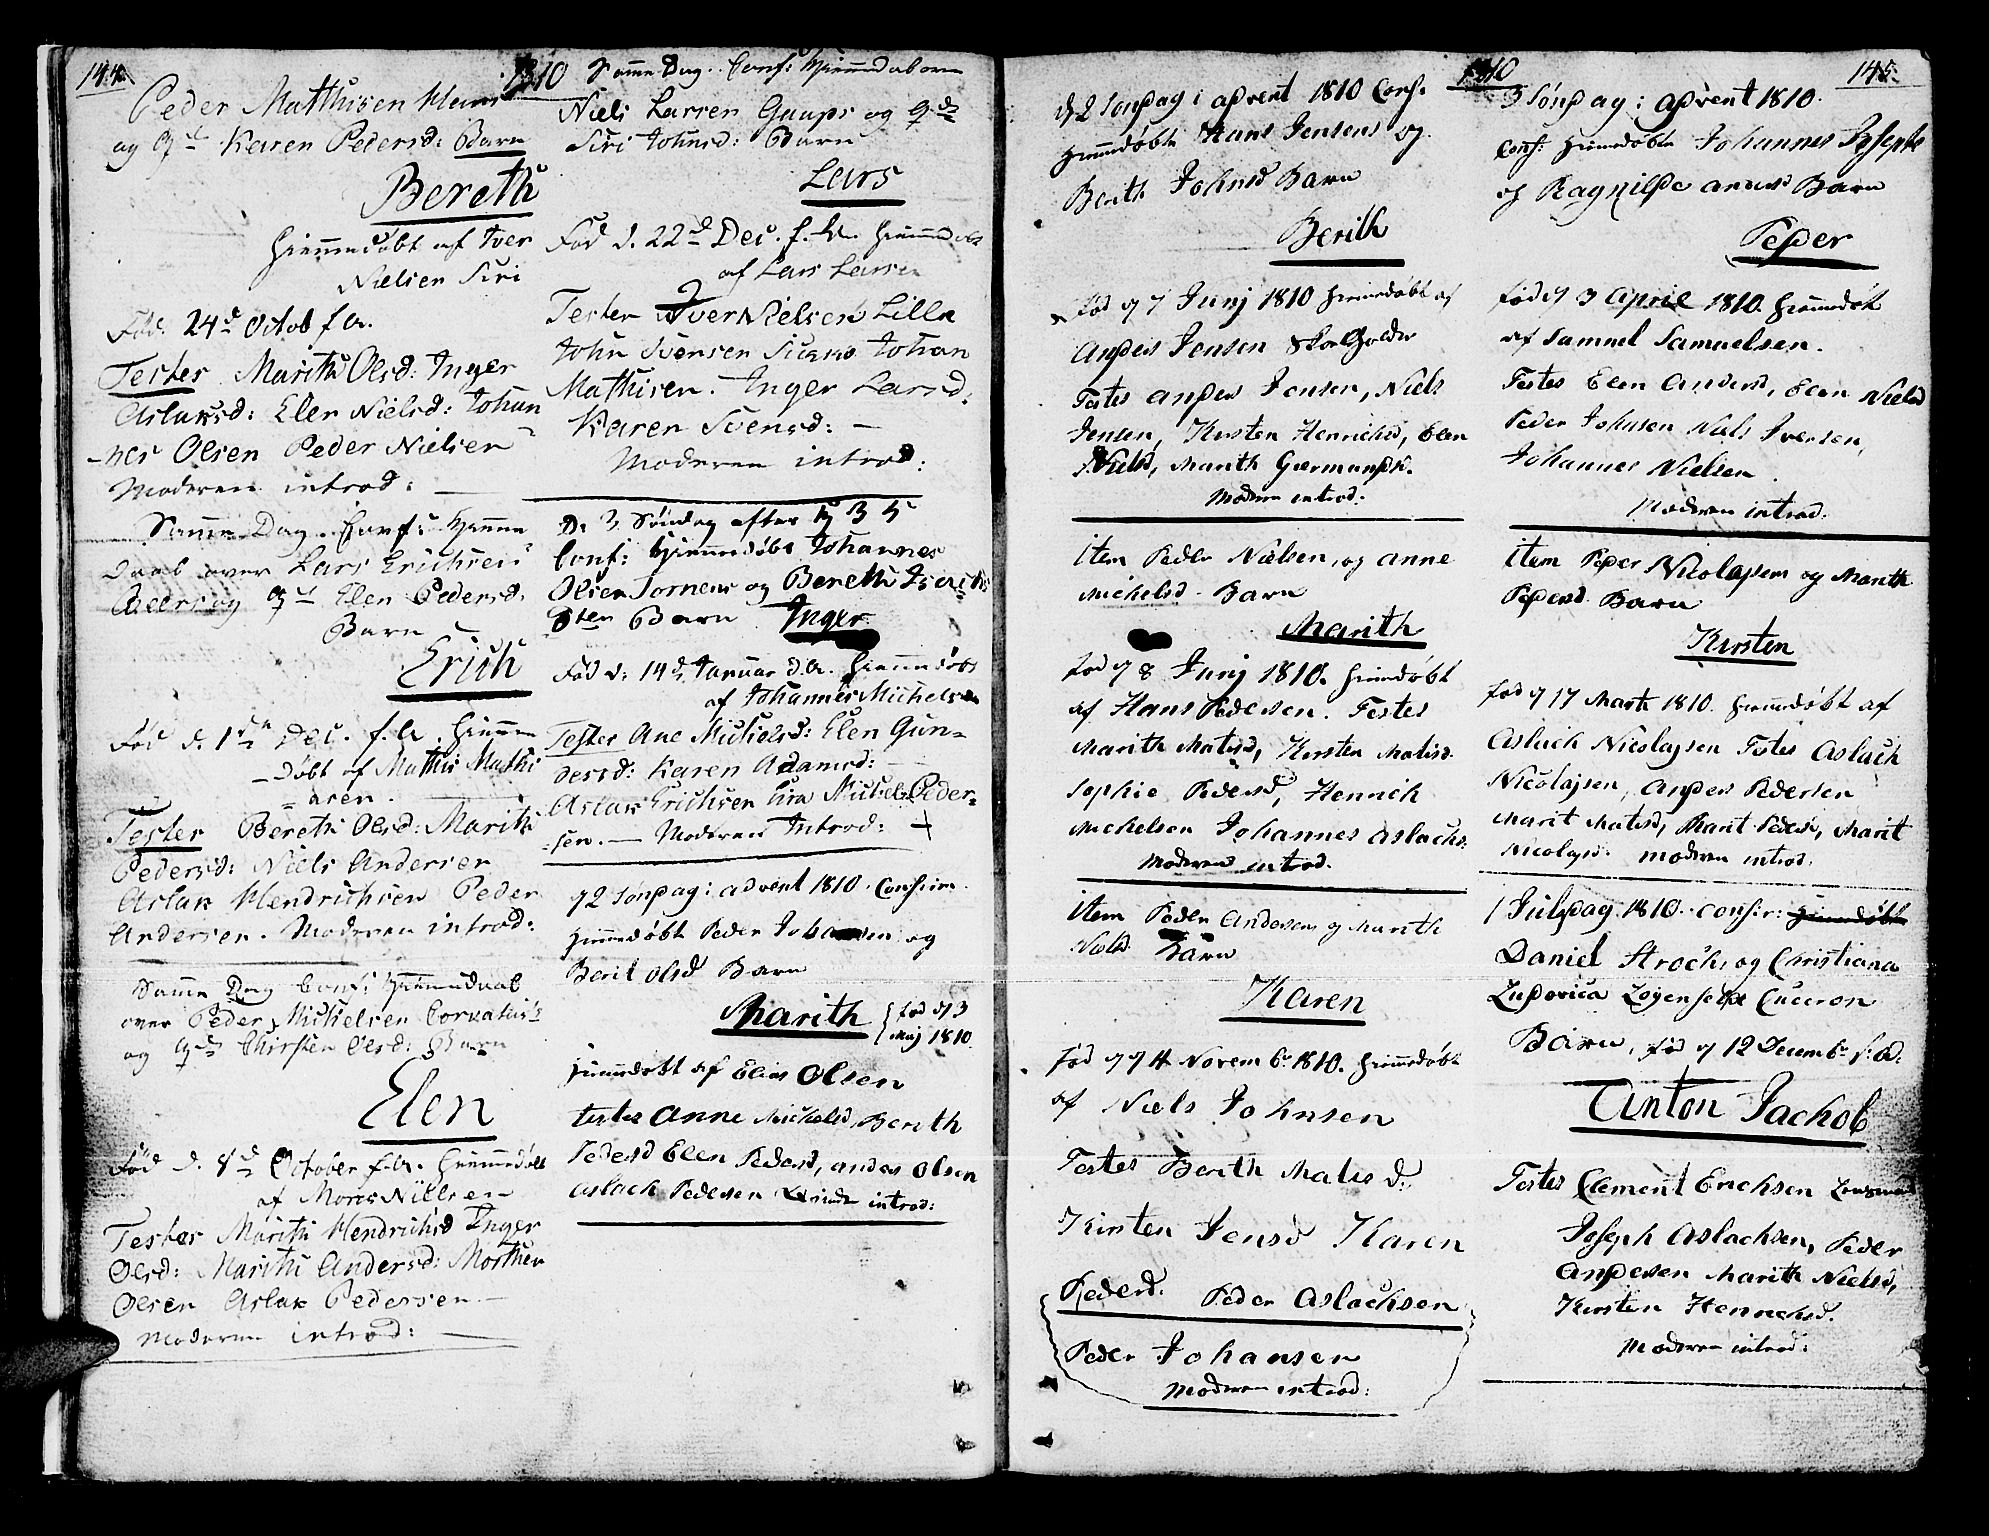 144.
1810
Peder Matthisen
og Karen Pedersd: Barn
Bereth
Hiemmedøbt af Iver
Nielsen Siri
Fød. 24d Octob f. A.
Testes Marith Olsd: Inger
Aslaksd: Elen Nielsd: Johan
nes Olsen Peder Nielsen
Moderen introd:
Samme Dag. Conf: Hjemme
daab over Lars Erichsen
og Elen Pedersd:
Barn
Erich
Fød d. 1 Dec. f. A. Hiemme
døbt af Mathis Mathi
asen.
Testes Bereth Olsd: Marith
Pedersd: Niels Andersen
Aslak Hendrichsen Peder
Andersen. Moderen introd:
Samme Dag Conf: Hjemmedaab
over Peder Michelsen
og Chirsten Olsd: Barn
Elen
Fød d. 8d October f. A. Hiemmedøbt
af Nielsen
Testes Marith Hendrichsd Inger
Olsd: Marith Andersd: Morthen
Olsen Aslak Pedersen
Moderen introd:
Samme Dag. Conf: Hjemmedaab over
Niels Larsen Gaups og
Siri Johnsd: Barn
Lars
Fød d. 22d Dec. f. A. Hiemmedøbt
af Lars Larsen
Testes Iver Nielsen Lilla
John Svensen Johan
Mathisen. Inger Larsd.
Karen Svensd:
Moderen introd:
D. 3 Søndag efter H 3 K
Conf: Hiemmedøbt Johannes
Olsen Tornens og Bereth
Barn Inger
Fød d: 14d Januar d. A. Hiemmedøbt
af Johannes Michelsen
Testes Ane Michelsd: Elen Gun-
dersd: Karen Adamsd:
Aslak Erichsen Michel Peder-
sen. Moderen Introd:
d 2 Søndag i advent 1810. Confirm.
Hiemmedøbt Peder Johansen og
Berit Olsd Barn
Marith
fød d 3
Maj 1810.
Hiemmedøbt af Elias Olsen
testes Anne Michelsd, Berith
Pedersd Elen Pedersd, anders Olsen
Aslach Pedersen introd:
1810
145.
d 2 Søndag i advent 1810 Conf.
Hiemmedøbte Hans Jensens og
Berith Johnsd Barn
Berith
fød d 7 Junj 1810 Hiemmedøbt af
Anders Jensen Skolholder
Testes Anders Jensen, Niels
Jensen, Kirsten Henrichsd, Elen
Nielsd, Marith
Moderen introd:
item Peder Nielsen, og Anne
Michelsd. Barn
Marith
fød d 8 Junj 1810. Hiemmedøbt
af Hans Pedersen. Testes
Marith Matisd, Kirsten Matisd.
Sophie Pedersd, Henrich
Michelsen Johannes Aslachs.
Moderen introd.
item Peder Andersens og Marith
Nielsd. Barn
Karen
fød d Novembr 1810. Hiemmedøbt
af Niels Johnsen
Testes Berith Matis D:
Kirsten Jensd Karen
Pedersd. Peder Aslachsen
Peder Johansen
Moderen introd:
3 Søndag i advent 1810.
Conf: Hiemmedøbte Johannes Josephs
og Ragnilde Andersd Barn
Peder
fød d 3 April 1810. Hiemmedøbt
af Samuel Samuelsen.
Testes Elen Andersd, Elen Nielsd
Peder Johnsen Niels Iversen,
Johannes Nielsen
Moderen introd:
item Peder Nicolajsens og Marith
Pedersd. Barn
Kirsten
fød d 17 Marts 1810. Hiemmedøbt af
Aslach Nicolajsen Testes Aslach
Nicolajsen, Anders Pedersen
Marit Matisd, Marit Pedersd, Marit
Nicolajsd. Moderen introd.
1 Juledag 1810. confir: Hiemmedøbte
Daniel Strochs og Christiana
Ludovica Cuceron
Barn, fød d 12 Decembr s: A:
Anton Jachob
Testes Clement Erichsen Lensmand
Joseph Aslachsen, Peder
Andersen Marith Nielsd,
Kirsten Henrichsd.
Moderen introd: